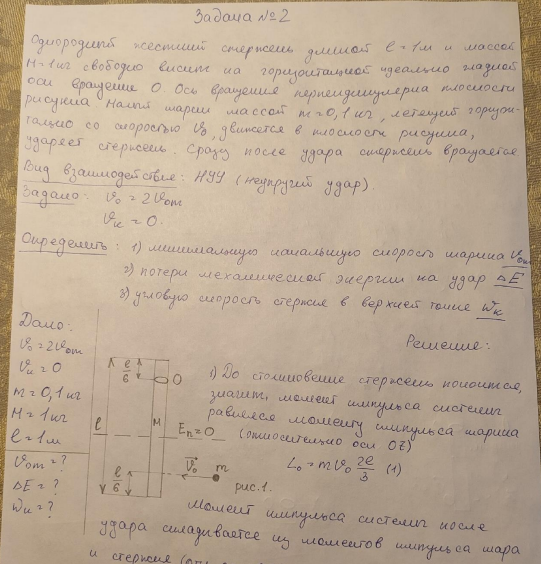 Задача №2
Однородный жесткий стержень длиной l = 1м и массой
M = 1 кг свободно висит на горизонтальной идеально гладкой
оси вращение O. Ось вращения перпендикулярна плоскости
рисунка. Малый шарик массой m = 0,1 кг, летящий горизон-
тально со скоростью V₀, движется в плоскости рисунка,
ударяет стержень. Сразу после удара стержень вращается
Вид взаимодействия: НУУ (неупругий удар).
Задано: V₀ = 2V₀m
Vк = 0.
Определить: 1) минимальную начальную скорость шарика V₀m
2) потери механической энергии на удар ΔE
3) угловую скорость стержня в верхней точке Wк
Дано:
V₀ = 2V₀m
Vк = 0
m = 0,1 кг
M = 1 кг
l = 1м
V₀m = ?
ΔE = ?
Wк = ?
l/6
O
l
M
Eп = 0
l/6
V₀
m
рис. 1.
Решение:
1) До столкновение стержень покоится,
значит, момент импульса системы
равнялся моменту импульса шарика
(относительно оси OZ)
L₀ = mV₀ 2l/3 (1)
Момент импульса системы после
удара складывается из моментов импульса шара
и стержня